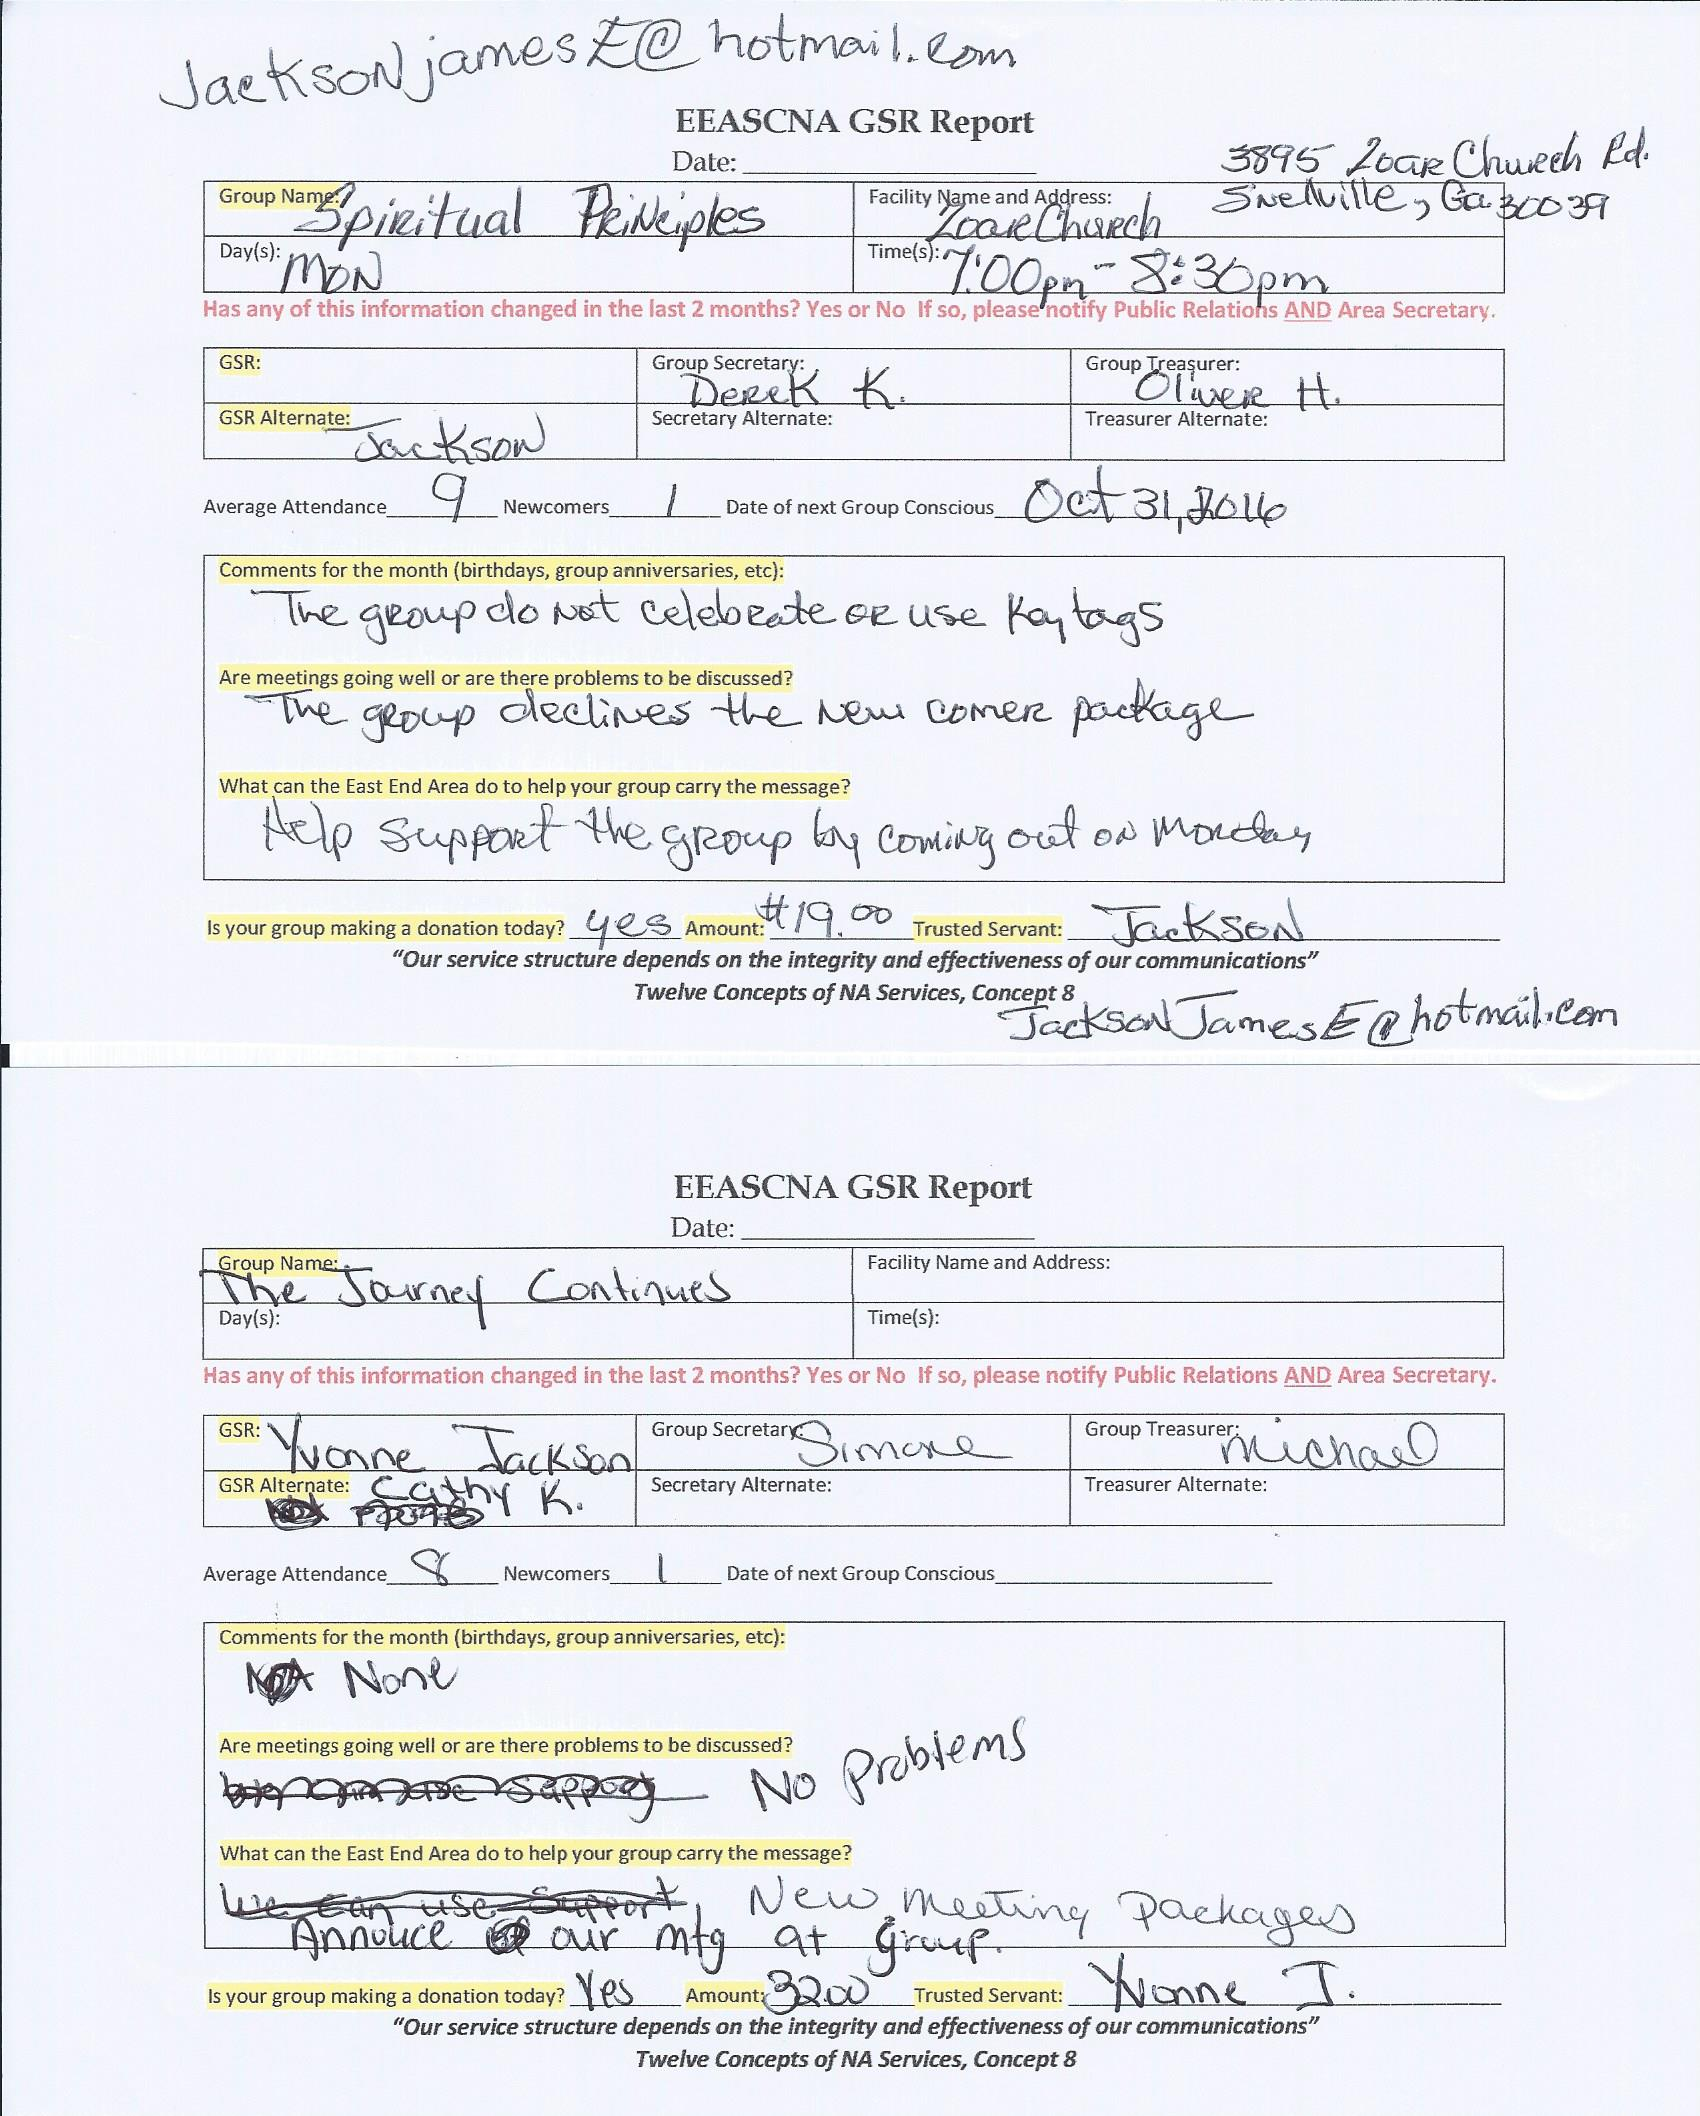 JacksonjamesE@hotmail.com
EEASCNA GSR Report
Date:
3895 Zoar Church Rd.
Snellville, Ga 30039
Group Name: Spiritual Principles
Facility Name and Address: Zoar Church
Day(s): Mon
Time(s): 7:00pm - 8:30pm
Has any of this information changed in the last 2 months? Yes or No If so, please notify Public Relations AND Area Secretary.
GSR:
Group Secretary: Derek K.
Group Treasurer: Oliver H.
GSR Alternate: Jackson
Secretary Alternate:
Treasurer Alternate:
Average Attendance 9 Newcomers 1 Date of next Group Conscious Oct 31, 2016
Comments for the month (birthdays, group anniversaries, etc):
The group do not celebrate or use Key tags
Are meetings going well or are there problems to be discussed?
The group declines the new comer package
What can the East End Area do to help your group carry the message?
Help support the group by coming out on Monday
Is your group making a donation today? yes Amount: $19.00 Trusted Servant: Jackson
“Our service structure depends on the integrity and effectiveness of our communications”
Twelve Concepts of NA Services, Concept 8
JacksonJamesE@hotmail.com
EEASCNA GSR Report
Date:
Group Name: The Journey Continues
Facility Name and Address:
Day(s):
Time(s):
Has any of this information changed in the last 2 months? Yes or No If so, please notify Public Relations AND Area Secretary.
GSR: Yvonne Jackson
Group Secretary: Simone
Group Treasurer: Michael
GSR Alternate: Cathy K.
Secretary Alternate:
Treasurer Alternate:
Average Attendance 8 Newcomers 1 Date of next Group Conscious
Comments for the month (birthdays, group anniversaries, etc):
None
Are meetings going well or are there problems to be discussed?
No Problems
What can the East End Area do to help your group carry the message?
We Can use Support New Meeting Packages
Annouce our mtg at group.
Is your group making a donation today? Yes Amount: 32.00 Trusted Servant: Yvonne J.
“Our service structure depends on the integrity and effectiveness of our communications”
Twelve Concepts of NA Services, Concept 8